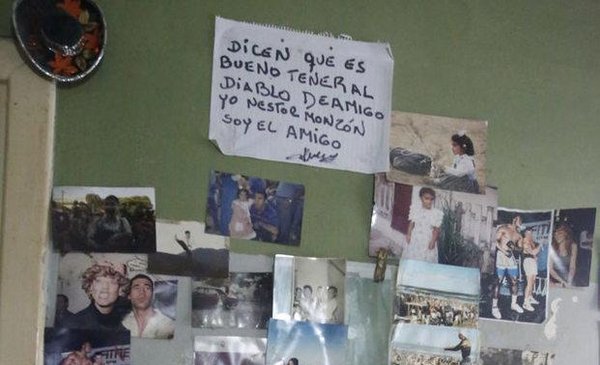 DICEN QUE ES
BUENO TENER AL
DIABLO DE AMIGO
YO NESTOR MONZÓN
SOY EL AMIGO